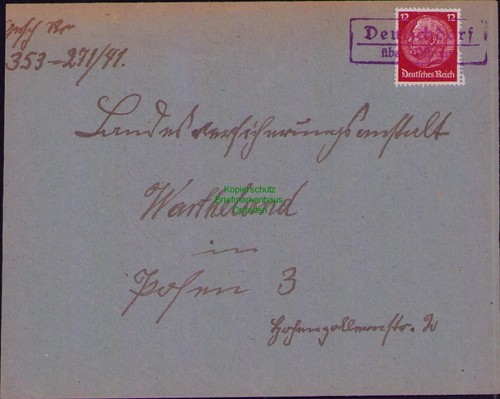 Gesch Nr
353-271/41.
Deutschdorf
über
12 12
Deutsches Reich
Landesversicherungsanstalt
Wartheland
in
Posen 3
Hohenzollernstr. 2
Kopierschutz
Briefmarkenhaus
Dresden